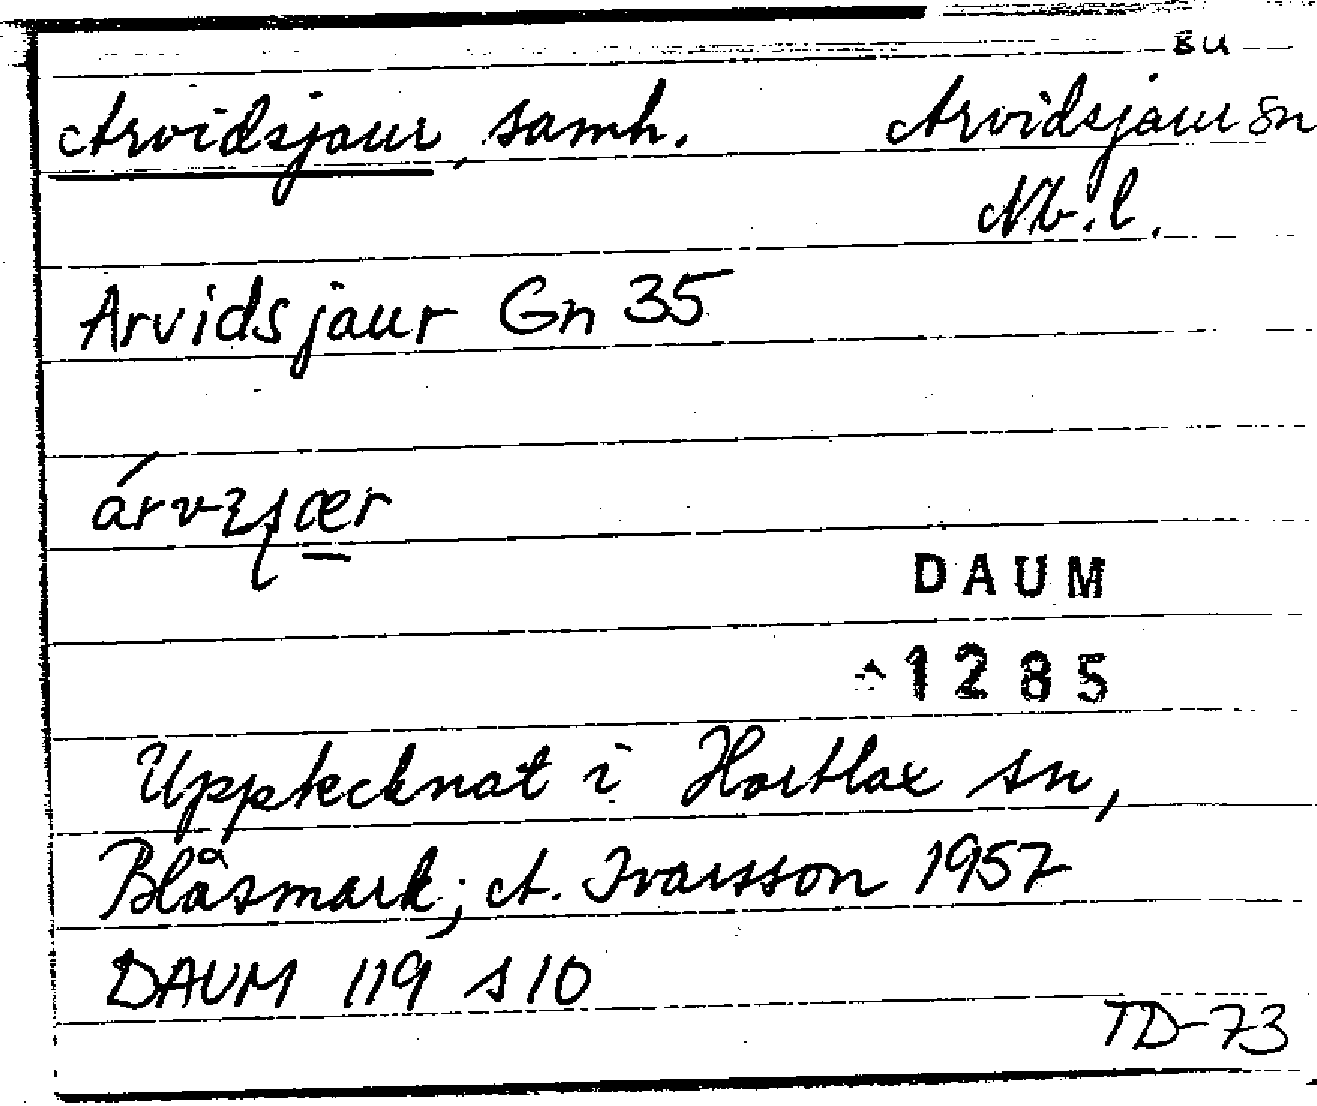 BU
Arvidsjaur, samh. Arvidsjaur sn
Nb.l.
Arvidsjaur Gn 35
DAUM
1285
Upptecknat i Hortlax sn,
Blåsmark; A. Ivarsson 1957
DAUM 119 s 10
TD-73